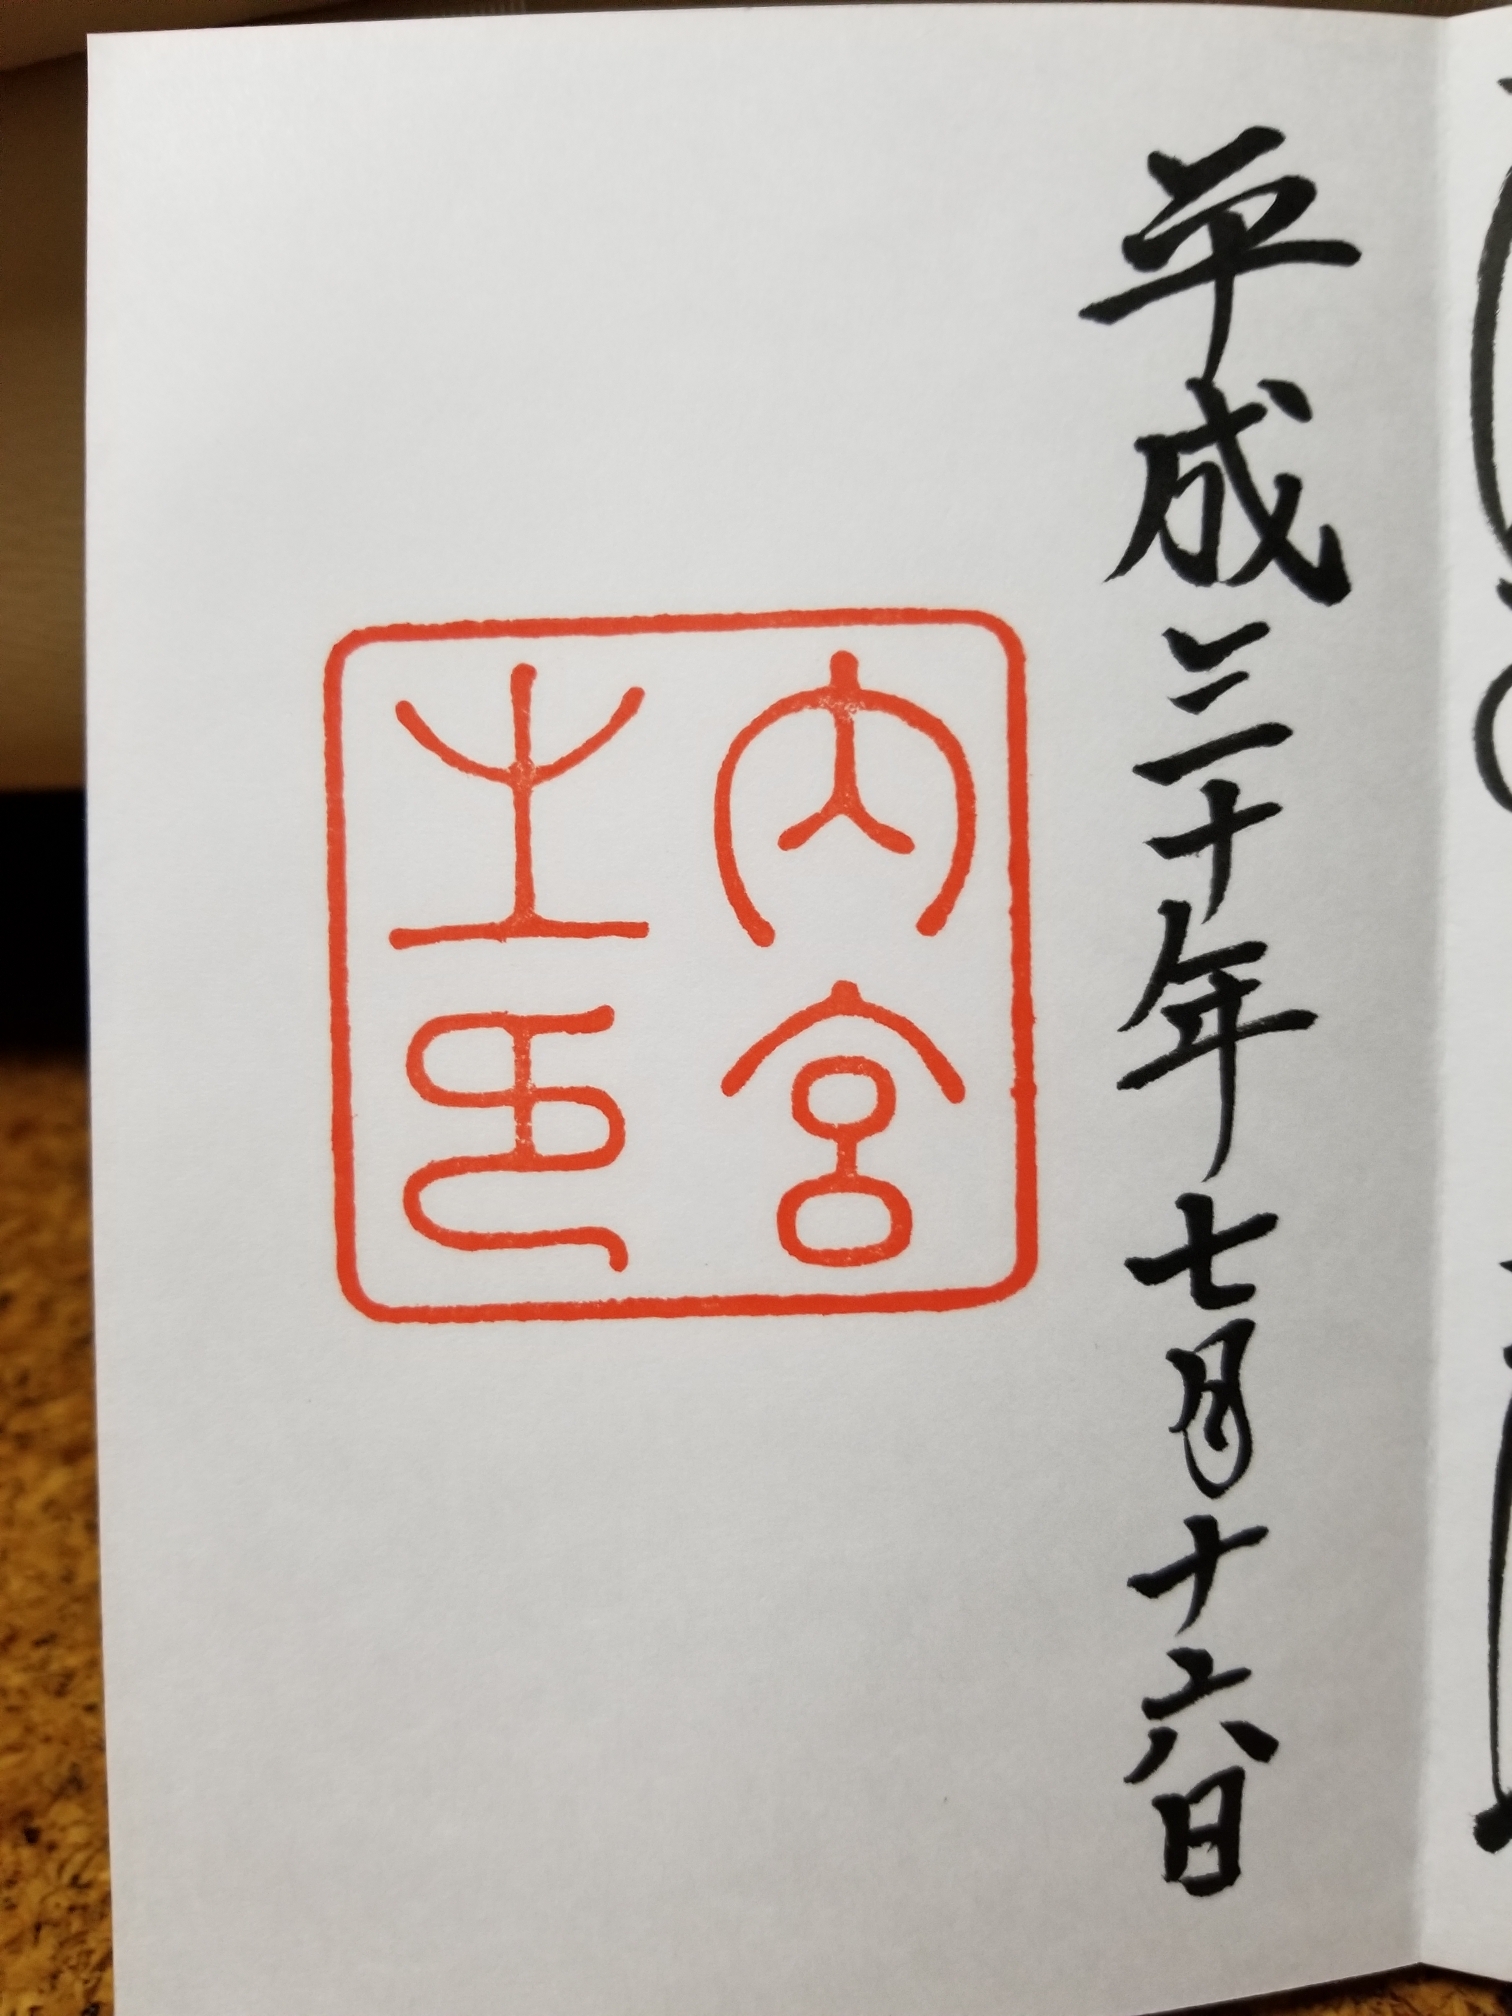 平成三十年七月十六日
内宮
之印